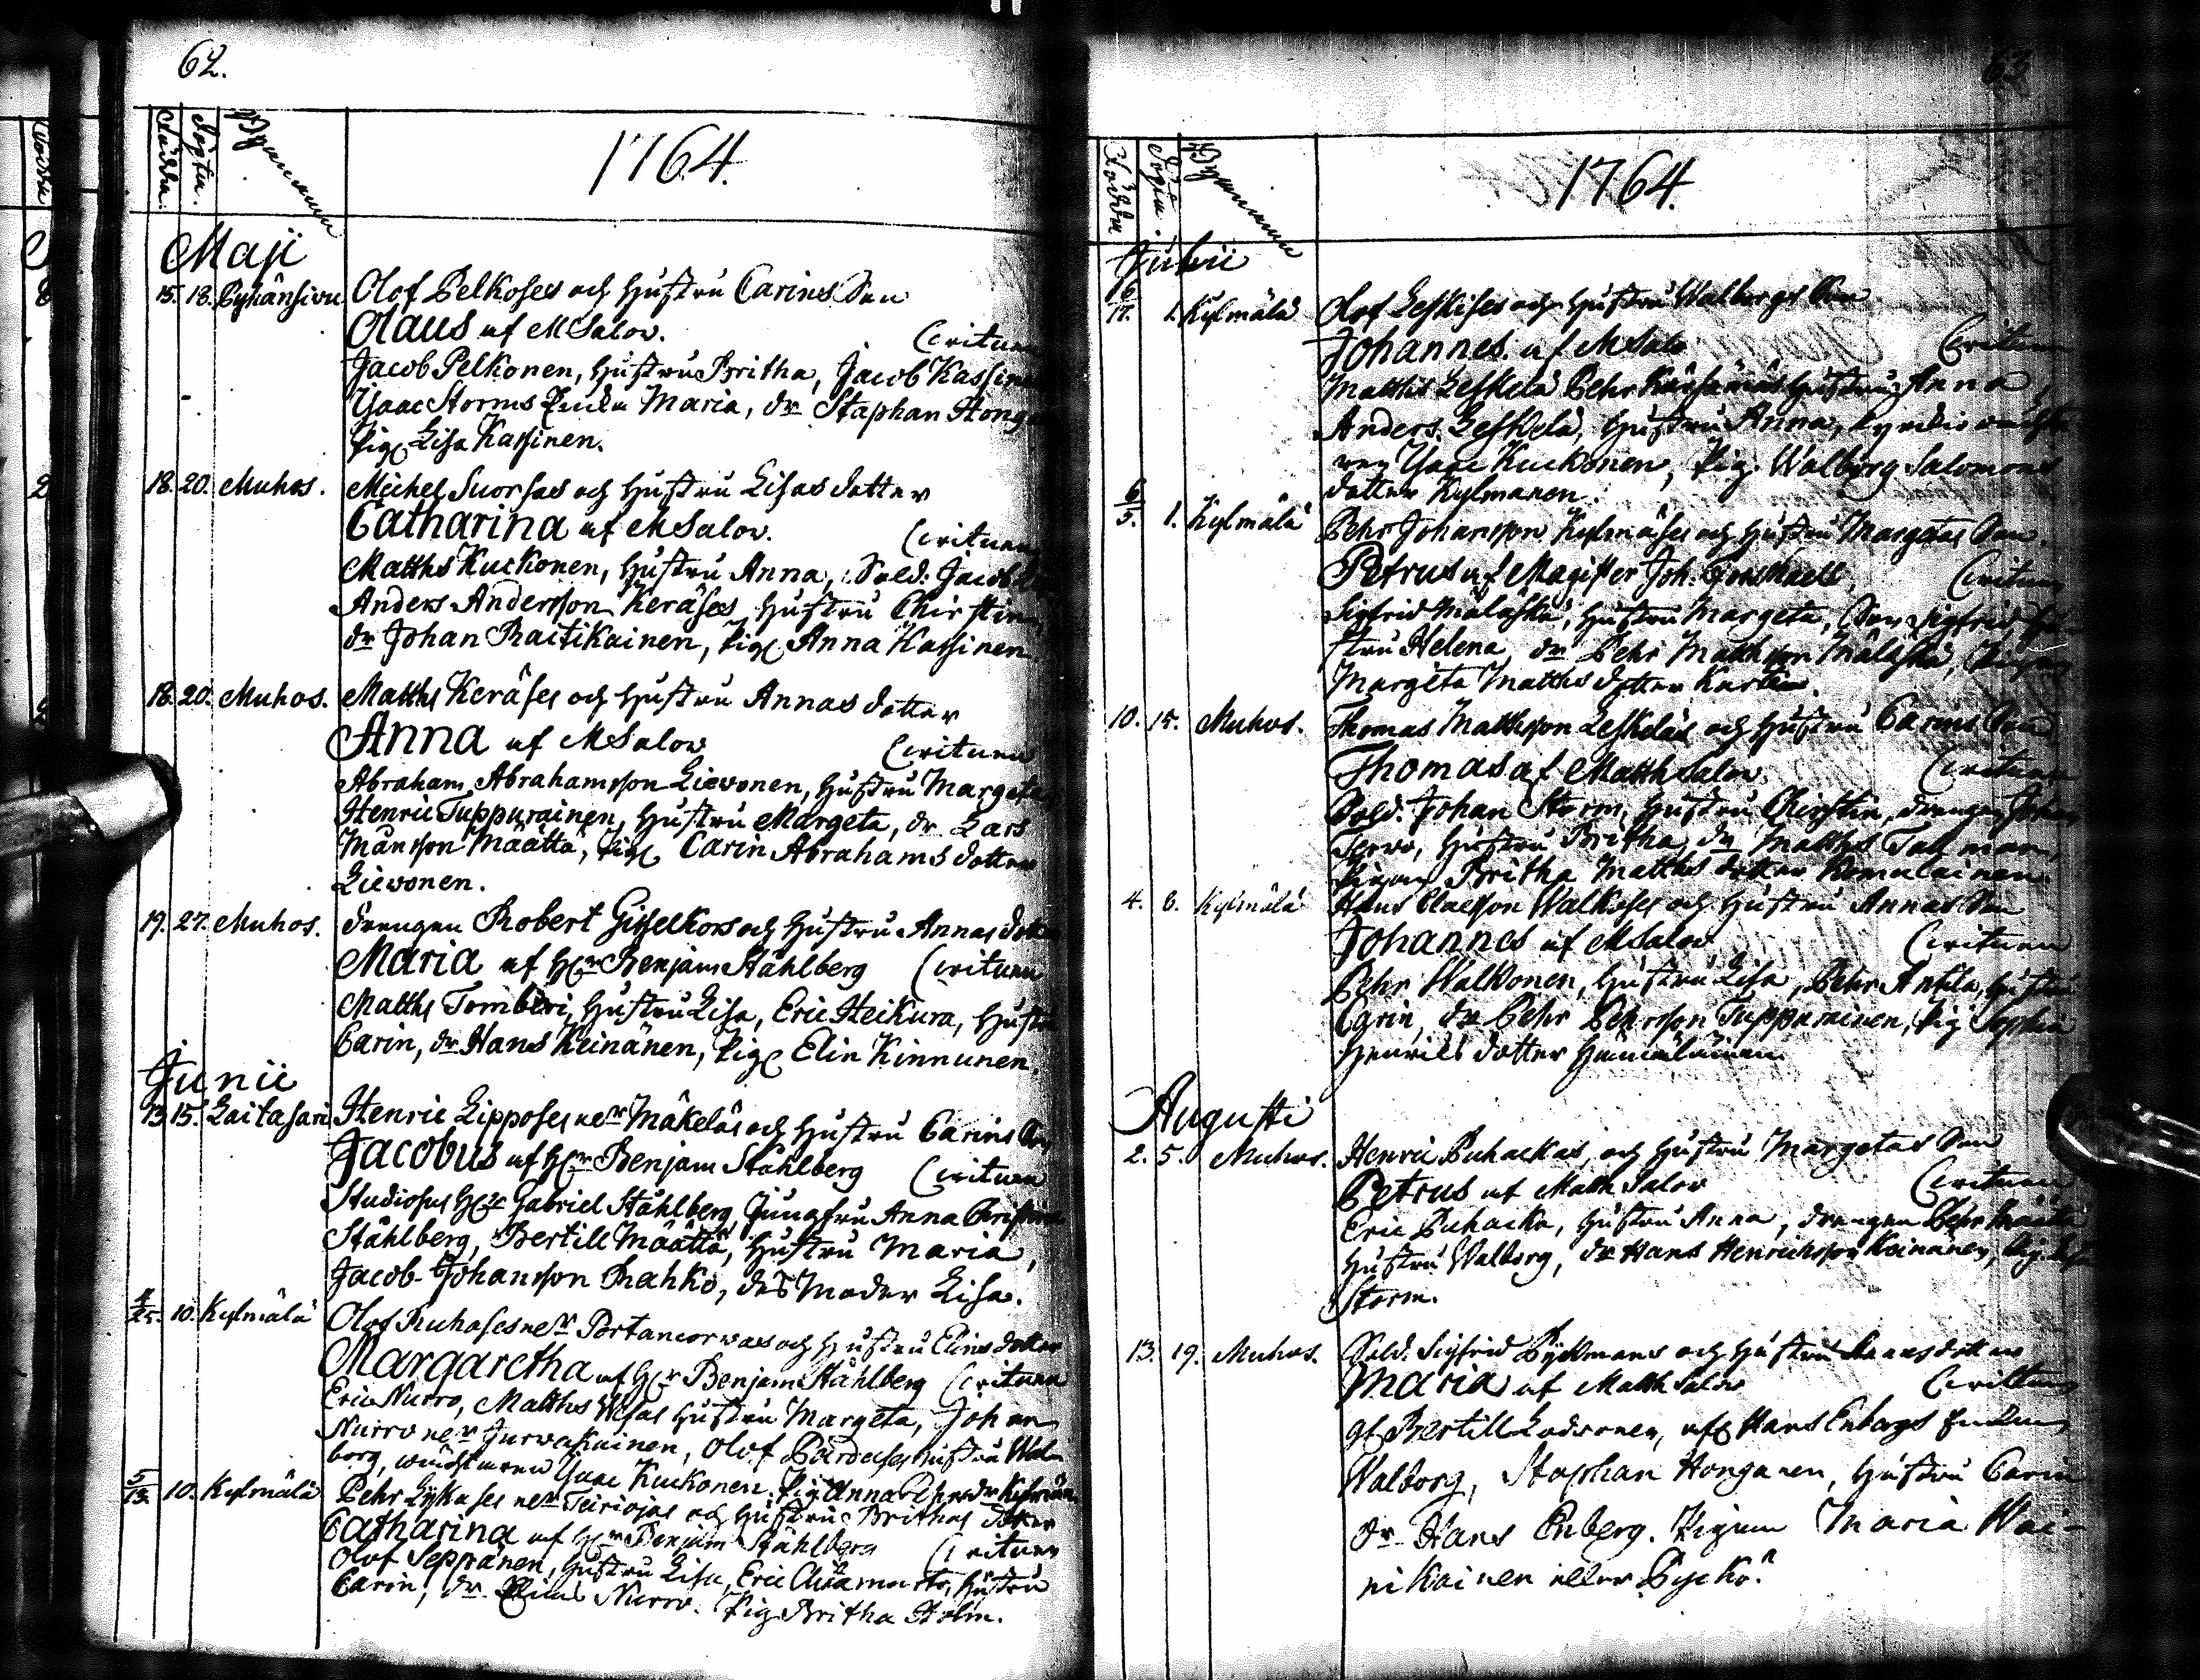 62.
Födda. Döpta. Bynamnen
1764.
Maji
15. 18. Pyhänsivu Olof Pelkoses och Hustru Carins Son
Olaus af M Salov. (Crituan
Jacob Pelkonen, Hustru Britha, Jacob Kassinen
Isaac Storms Enka Maria, dr Staphan Honga
Pig. Lisa Kassinen.
18. 20. Muhos. Michel Suorsas och Hustru Lisas dotter
Catharina af M Salov. (Crituan
Matths Kuckonen, Hustru Anna, Sold. Jacob
Anders Andersson Keräses Hustru Chirstin,
dr Johan Raitikainen, Pig. Anna Kassinen.
18. 20. Muhos. Matths Keräses och Hustru Annas dotter
Anna af M Salov (Crituan
Abraham Abrahamsson Liewonen, Hustru Margeta,
Henric Tuppurainen, Hustru Margeta, dr Lars
Månsson Määttä, Pig. Carin Abrahams dotter
Liewonen.
19. 27. Muhos. Drengen Robert Gisselkors och Hustru Annas dotter
Maria af Hr Benjam Ståhlberg (Crituan
Matths Tomberi, Hustru Lisa, Eric Heikura, Hustru
Carin, dr Hans Keinänen, Pig. Elin Kinnunen.
Junii
13 15. Laitasari Henric Lipposes ner Mäkeläs och Hustru Carins Son
Jacobus af Hr Benjam Ståhlberg (Crituan
Studiosus Hr Gabriel Ståhlberg, Jungfru Anna Christina
Ståhlberg, Bertill Määttä, Hustru Maria,
Jacob Johansson Rahko, des Moder Lisa.
4/25. 10. Kylmälä Olof Ruhases ner Portancorwas och Hustru Elins dotter
Margaretha af Hr Benjam Ståhlberg (Crituan
Eric Nurro, Matths Wesas Hustru Margeta, Johan
Nurro ner Jurwakainen, Olof Pardases Hustru Wal-
borg, wäcktaren Isaac Kuckonen. Pig Anna Pehrsdr Kylmän.
5/13. 10. Kylmälä Pehr Lykases ner Teiriojas och Hustru Brithas dotter
Catharina af Hr Benjam Ståhlberg (Crituan
Olof Seppänen, Hustru Lisa, Eric Hustru
Carin, dr. Nurro. Pig Britha Holm.
63
Födda Döpta. Bynamnen
1764.
Julii
6/17. 1. Kylmälä Olof Leskises och Hustru Walborgs Son
Johannes af M Salo (Crituan
Matths Leskelä Pehr Hustru Anna,
Anders Leskelä, Hustru Anna,
ren Isaac Kuckonen, Pig. Walborg Salomons
dotter Kylmänen.
6/5. 1. Kylmälä Pehr Johansson Kylmäses och Hustru Margetas Son
Petrus af Magister Joh. (Crituan
Sigfrid Mälaskä, Hustru Margeta, Son Sigfrid Hu-
stru Helena dr Pehr Matthsson Mälaskä, Pigan
Margeta Matths dotter
10. 15. Muhos. Thomas Matthsson Leskeläs och Hustru Carins Son
Thomas af Matth Salov. (Crituan
Sold. Johan Storm, Hustru Chirstin, Drengen Johan
Hustru Britha, dr Matths Tallman,
Pigan Britha Matths dotter Komulainen.
4. 6. Kylmälä Hans Claesson Walkoses och Hustru Annas Son
Johannes af M Salov (Crituan
Pehr Walkonen, Hustru Lisa, Pehr Anttila, Hustru
Carin, dr Pehr Pehrsson Tuppurainen, Pig Sophia
Henrics dotter Hämäläinen.
Augusti
2. 5. Muhos. Henric Puhackas, och Hustru Margetas Son
Petrus af Math Salov (Crituan
Eric Puhacka, Hustru Anna, drengen Pehr Määttä
Hustru Walborg, dr Hans Henrichsson Keinänen, Pig. Lisa
Storm.
13. 19. Muhos. Sold. Sigfrid Byckmans och Hustru Annas dotter
Maria af Matth Salov (Crituan
gl. Bertill Lodwonen, afl. Hans Enbergs Enka
Walborg, Staphan Honganen, Hustru Carin
dr Hans Enberg. Pigan Maria Wai-
nikainen eller Pycko?